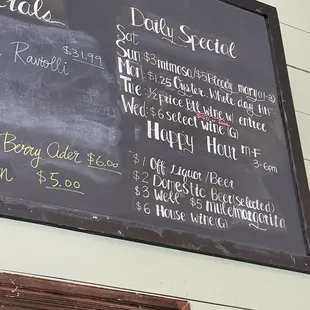 ials
Raviolli
$31.99
Berry Cider $6.00
$5.00
Daily Special
Sat
Sun $3 mimosa/$5 Bloody mary
Mon $1.25 Oyster Whole day
Tue ½ price Btl wine w/ entree
Wed $6 select wine (G)
Happy Hour M-F
3-6pm
$1 Off Liquor/Beer
$2 Domestic Beer (selected)
$3 Well $5 mule/margarita
$6 House wine (G)